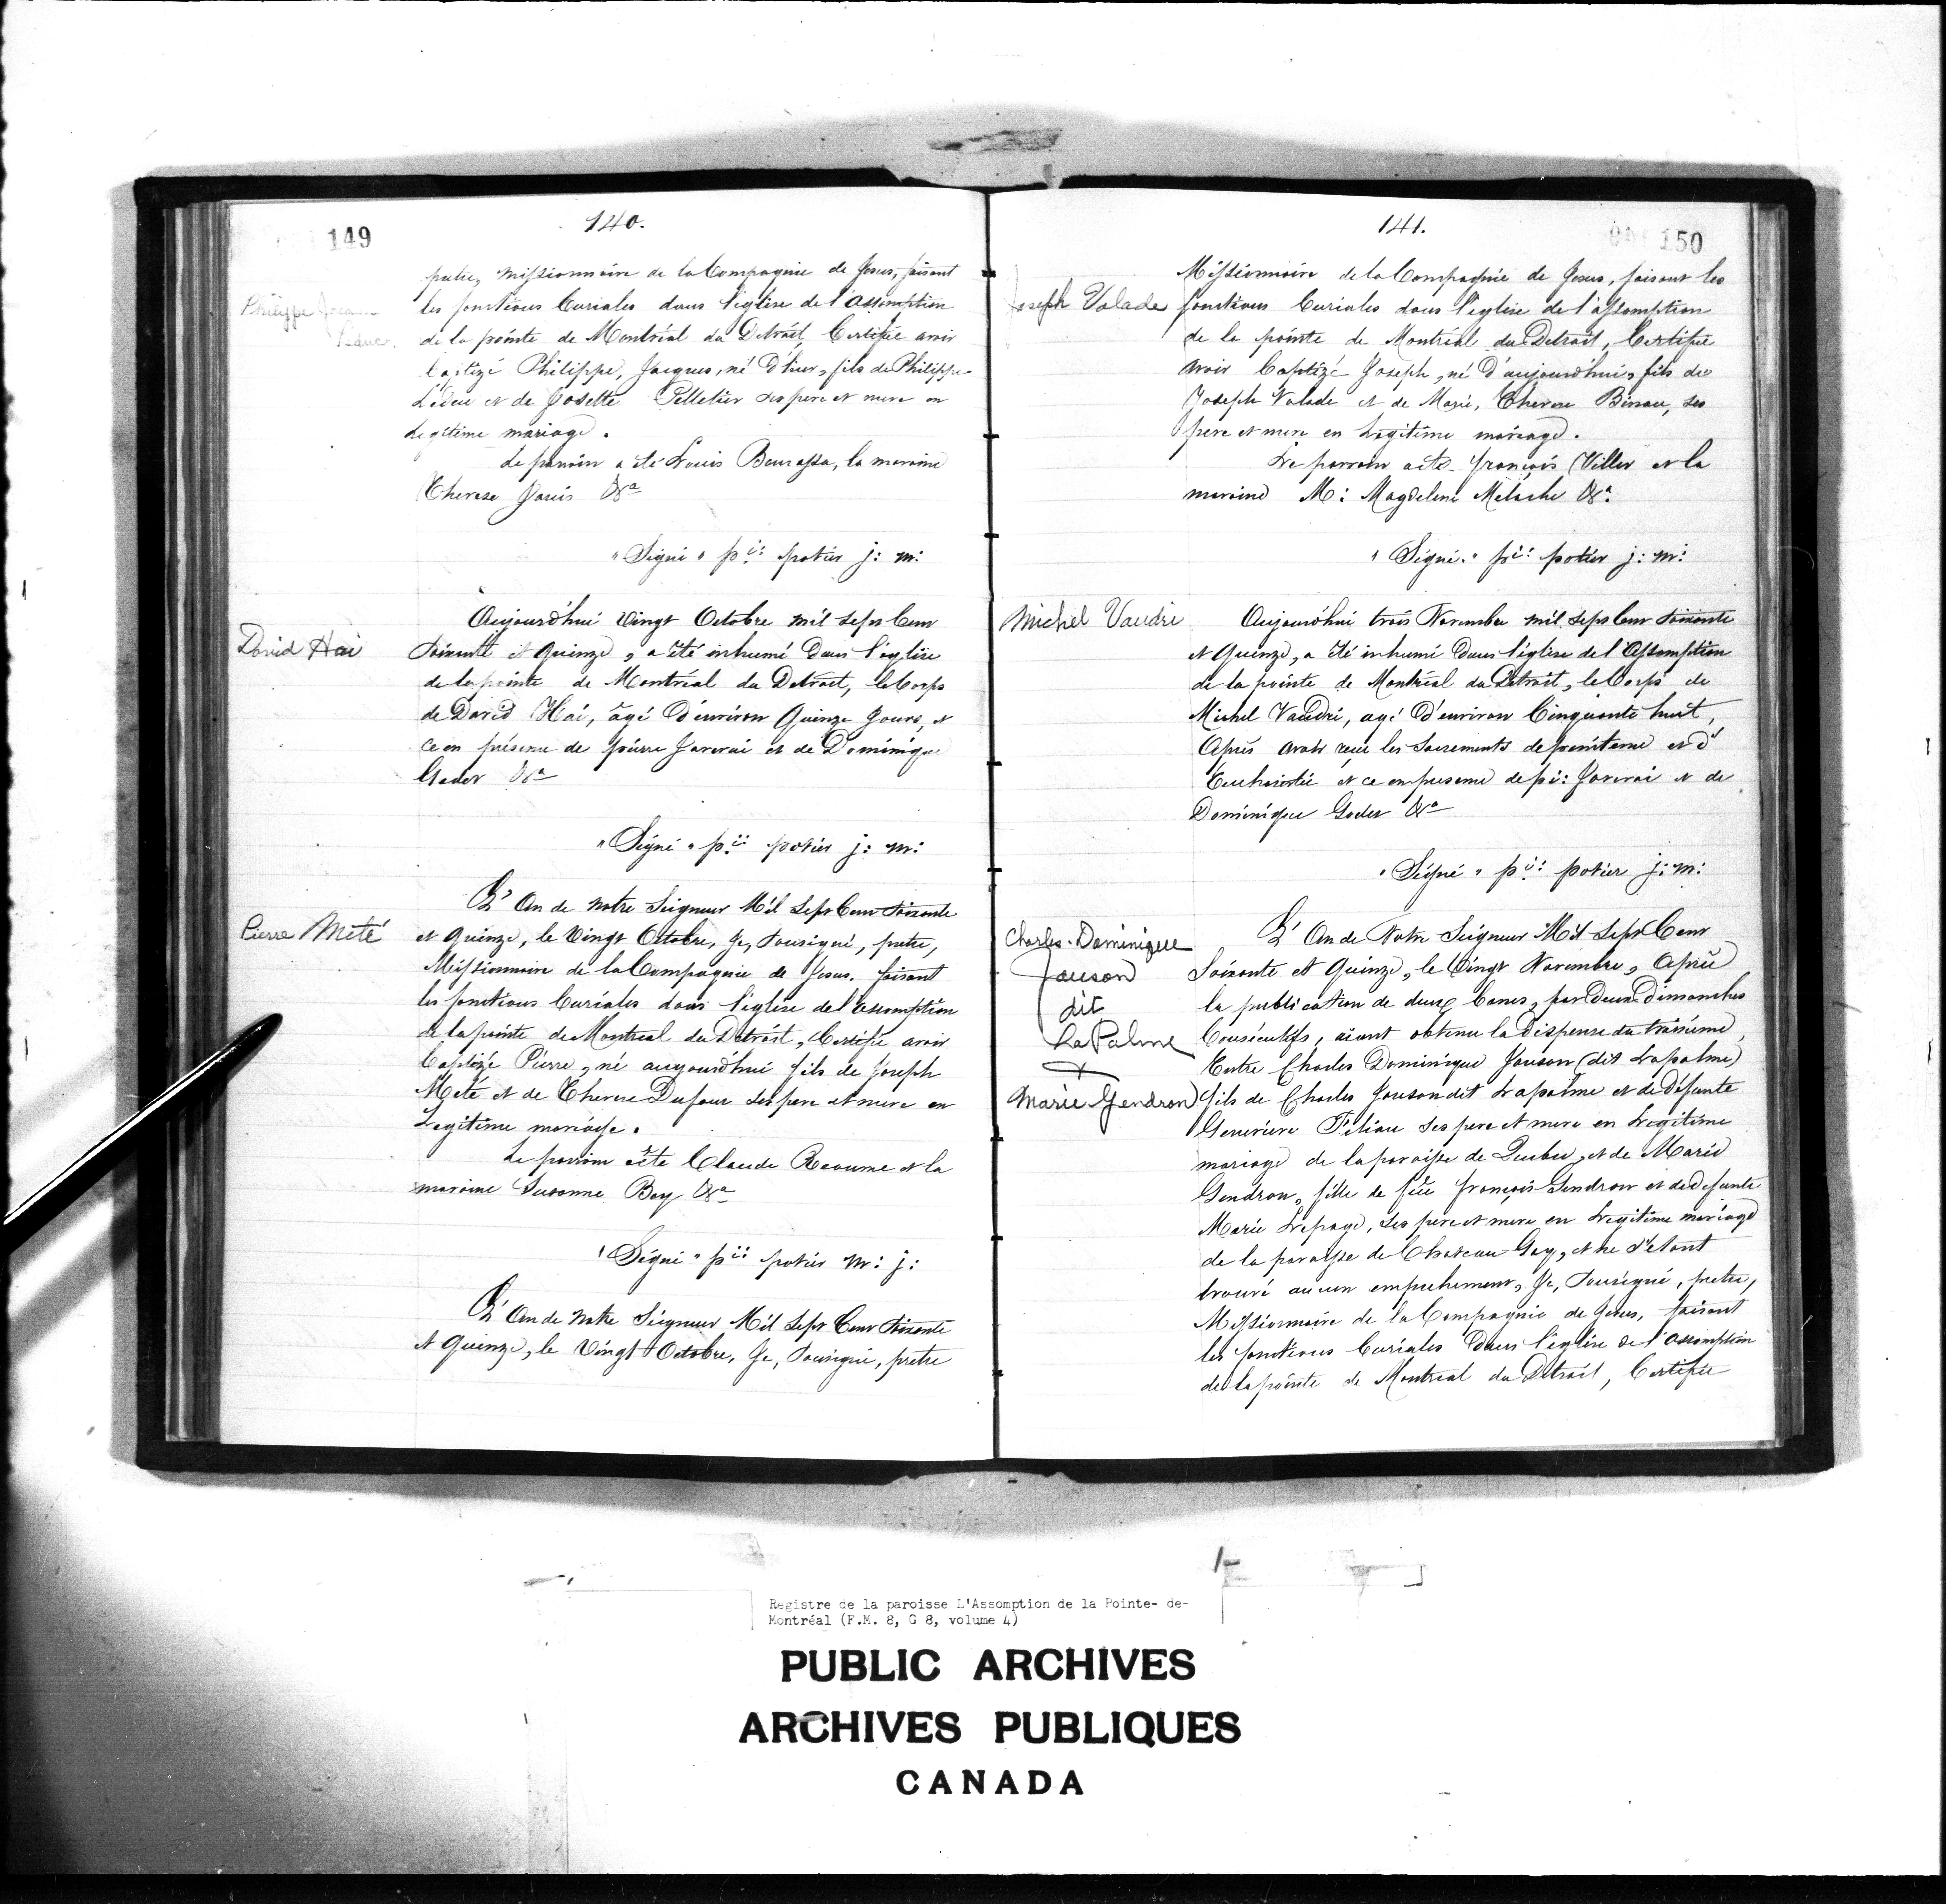 149
140.
Philippe
prêtre, Missionnaire de la Compagnie de Jesus, faisant
les fonctions Curiales dans l'église de l'Assomption
de la pointe de Montréal du Detroit, Certifie avoir
baptizé Philippe, Jacques, né d'hier, fils de Philippe
Leduc et de Josette Pelletier ses pere et mere en
Legitime mariage.
Le parrain a été Louis Bourassa, la maraine
Therese &a
"Signé" pi: potier j: m:
David Hai
Aujourd'hui Vingt Octobre mil Sept Cent
Soixante et Quinze, a été inhumé Dans l'église
de la pointe de Montréal du Detroit, le Corps
de David Hai, âgé d'environ Quinze Jours, et
ce en présence de pierre Janvrai et de Dominique
Goder &a
"Signé" pi: potier j: m:
Pierre Meté
L'An de Notre Seigneur Mil Sept Cent Soixante
et Quinze, le Vingt Octobre, Je, Sousigné, pretre,
Missionnaire de la Compagnie de Jesus, faisant
les fonctions Curiales dans l'église de l'assomption
de la pointe de Montreal du Détroit, Certifie avoir
baptizé Pierre, né aujourd'hui fils de Joseph
Meté et de Therese Dufour ses pere et mere en
Legitime mariage.
Le parrain a été Claude Reaume et la
maraine Susanne Boy &a
"Signé" pi: potier m: j:
L'An de Notre Seigneur Mil Sept Cent Soixante
et Quinze, le Vingt Octobre, Je, Sousigné, pretre
141.
150
Joseph Valade
Missionnaire de la Compagnie de Jesus, faisant les
fonctions Curiales dans l'église de l'assomption
de la pointe de Montréal du Detroit, Certifie
avoir baptizé Joseph, né d'aujourd'hui, fils de
Joseph Valade et de Marie, Therese Binau, ses
pere et mere en Legitime mariage.
Le parrain a été françois Viller et la
maraine M: Magdelene Meloche &a.
"Signé." pi: potier j: m:
Michel Vaudri
Aujourd'hui trois Novembre mil sept Cent Soixante
et Quinze, a été inhumé dans l'église de l'Assomption
de la pointe de Montréal du Detroit, le Corps de
Michel Vaudri, agé d'environ Cinquante huit,
Après avoir reçu les Sacrements de penitence et d'
Eucharistie et ce en presence de pi: Janvrai et de
Dominique Goder &a
"Signé" pi: potier j: m:
Charles-Dominique
Jauson
dit
LaPalme
&
Marie Gendron
L'An de Notre Seigneur Mil Sept Cent
Soixante et Quinze, le Vingt Novembre, Après
la publication de deux bans, par Deux Dimanches
Consécutifs, aiant obtenu la Dispense du troisieme,
Entre Charles Dominique Jauson (dit Lapalme)
fils de Charles Jauson dit Lapalme et de Défunte
Genevieve Filiau ses pere et mere en Legitime
mariage de la paroisse de Quebec, et de Marie
Gendron, fille de feu françois Gendron et de Defunte
Marie Lepage, ses pere et mere en Legitime mariage
de la paroisse de Chateau Gay, et ne s'etant
trouvé aucun empechement, Je, Sousigné, pretre,
Missionnaire de la Compagnie de Jesus, faisant
les fonctions Curiales dans l'église de l'assomption
de la pointe de Montreal du Detroit, Certifie
Registre de la paroisse L'Assomption de la Pointe- de-
Montréal (F.M. 8, G 8, volume 4)
PUBLIC ARCHIVES
ARCHIVES PUBLIQUES
CANADA